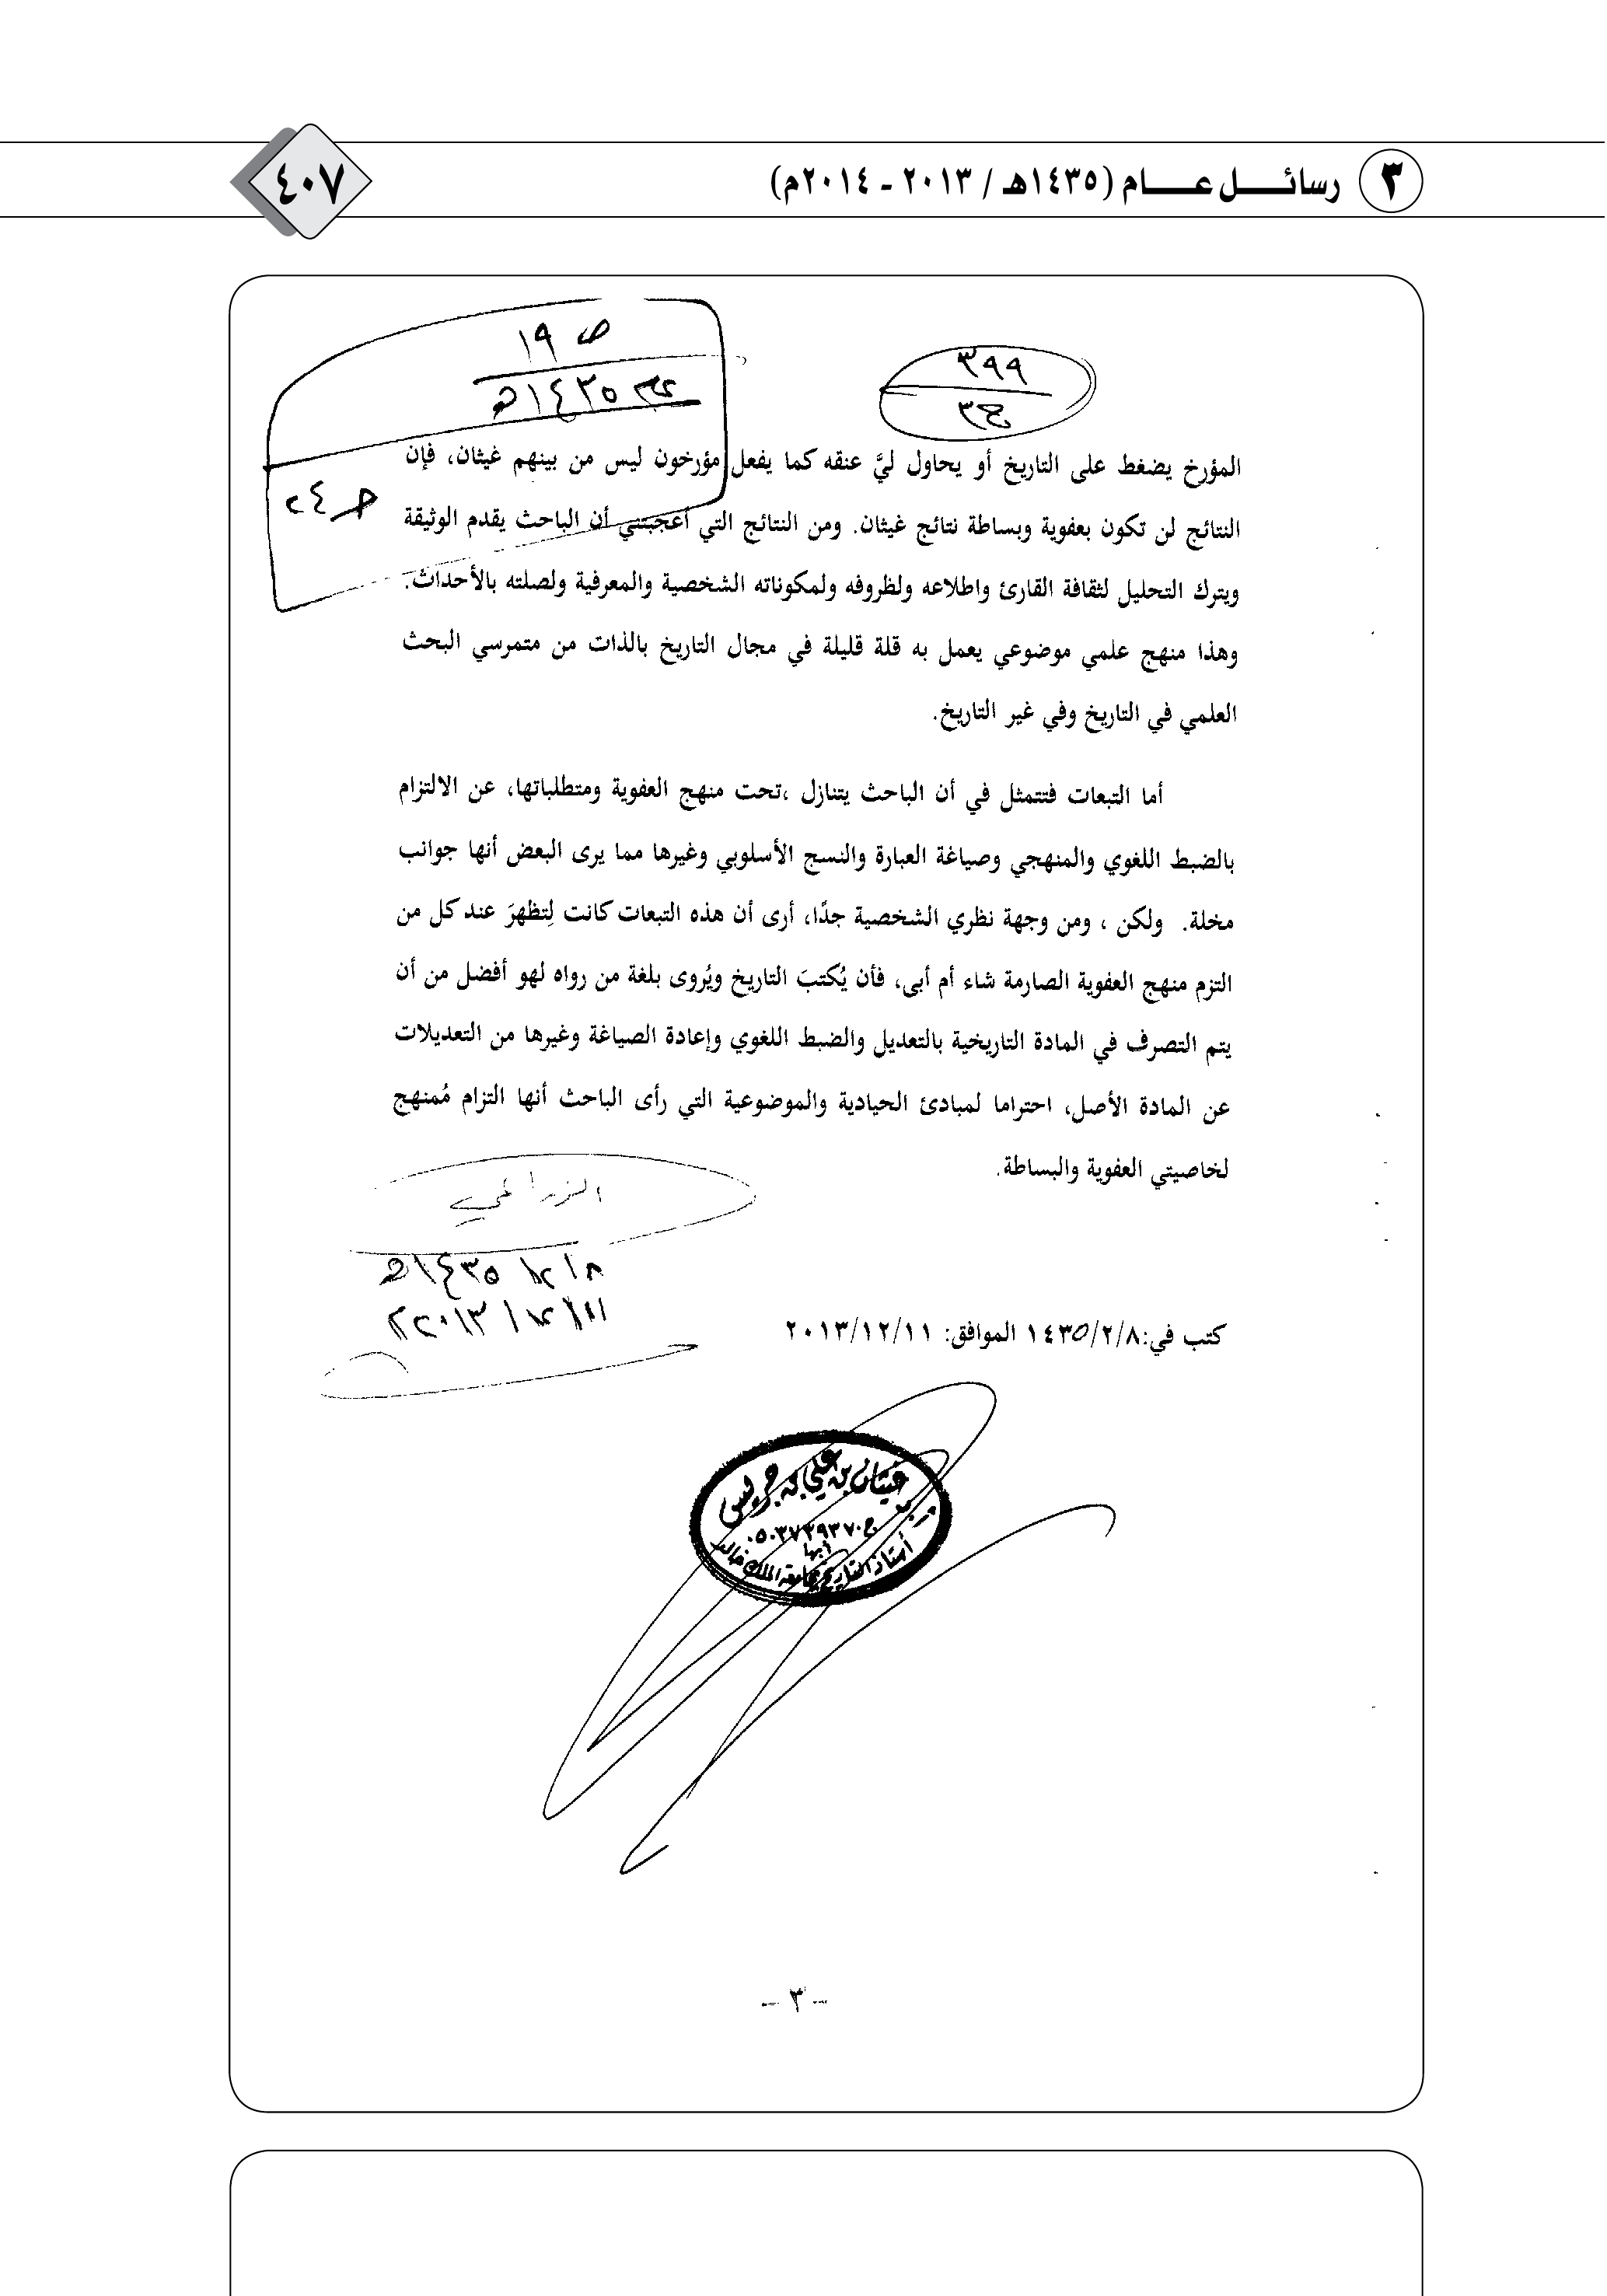 ٣ رسائل عام (١٤٣٥هـ / ٢٠١٣ - ٢٠١٤م) ٤٠٧
٣٩٩
ج٣
ص ١٩
١٤٣٥هـ
المؤرخ يضغط على التاريخ أو يحاول ليَّ عنقه كما يفعل مؤرخون ليس من بينهم غيثان، فإن
النتائج لن تكون بعفوية وبساطة نتائج غيثان. ومن النتائج التي أعجبتني أن الباحث يقدم الوثيقة
ويترك التحليل لثقافة القارئ واطلاعه ولظروفه ولمكوناته الشخصية والمعرفية ولصلته بالأحداث.
وهذا منهج علمي موضوعي يعمل به قلة قليلة في مجال التاريخ بالذات من متمرسي البحث
العلمي في التاريخ وفي غير التاريخ.
أما التبعات فتتمثل في أن الباحث يتنازل ،تحت منهج العفوية ومتطلباتها، عن الالتزام
بالضبط اللغوي والمنهجي وصياغة العبارة والنسج الأسلوبي وغيرها مما يرى البعض أنها جوانب
مخلة. ولكن ، ومن وجهة نظري الشخصية جدًا، أرى أن هذه التبعات كانت لِتظهرَ عند كل من
التزم منهج العفوية الصارمة شاء أم أبى، فأن يُكتبَ التاريخ ويُروى بلغة من رواه لهو أفضل من أن
يتم التصرف في المادة التاريخية بالتعديل والضبط اللغوي وإعادة الصياغة وغيرها من التعديلات
عن المادة الأصل، احتراما لمبادئ الحيادية والموضوعية التي رأى الباحث أنها التزام مُمنهج
لخاصيتي العفوية والبساطة.
٨/٢/١٤٣٥هـ
١١/١٢/٢٠١٣م
كتب في:١٤٣٥/٢/٨ الموافق: ٢٠١٣/١٢/١١
غيثان بن علي بن جريس
ج٠٥٠٣٧٣٩٣٧٠
أبها
أستاذ التاريخ بجامعة الملك خالد
- ٣ -